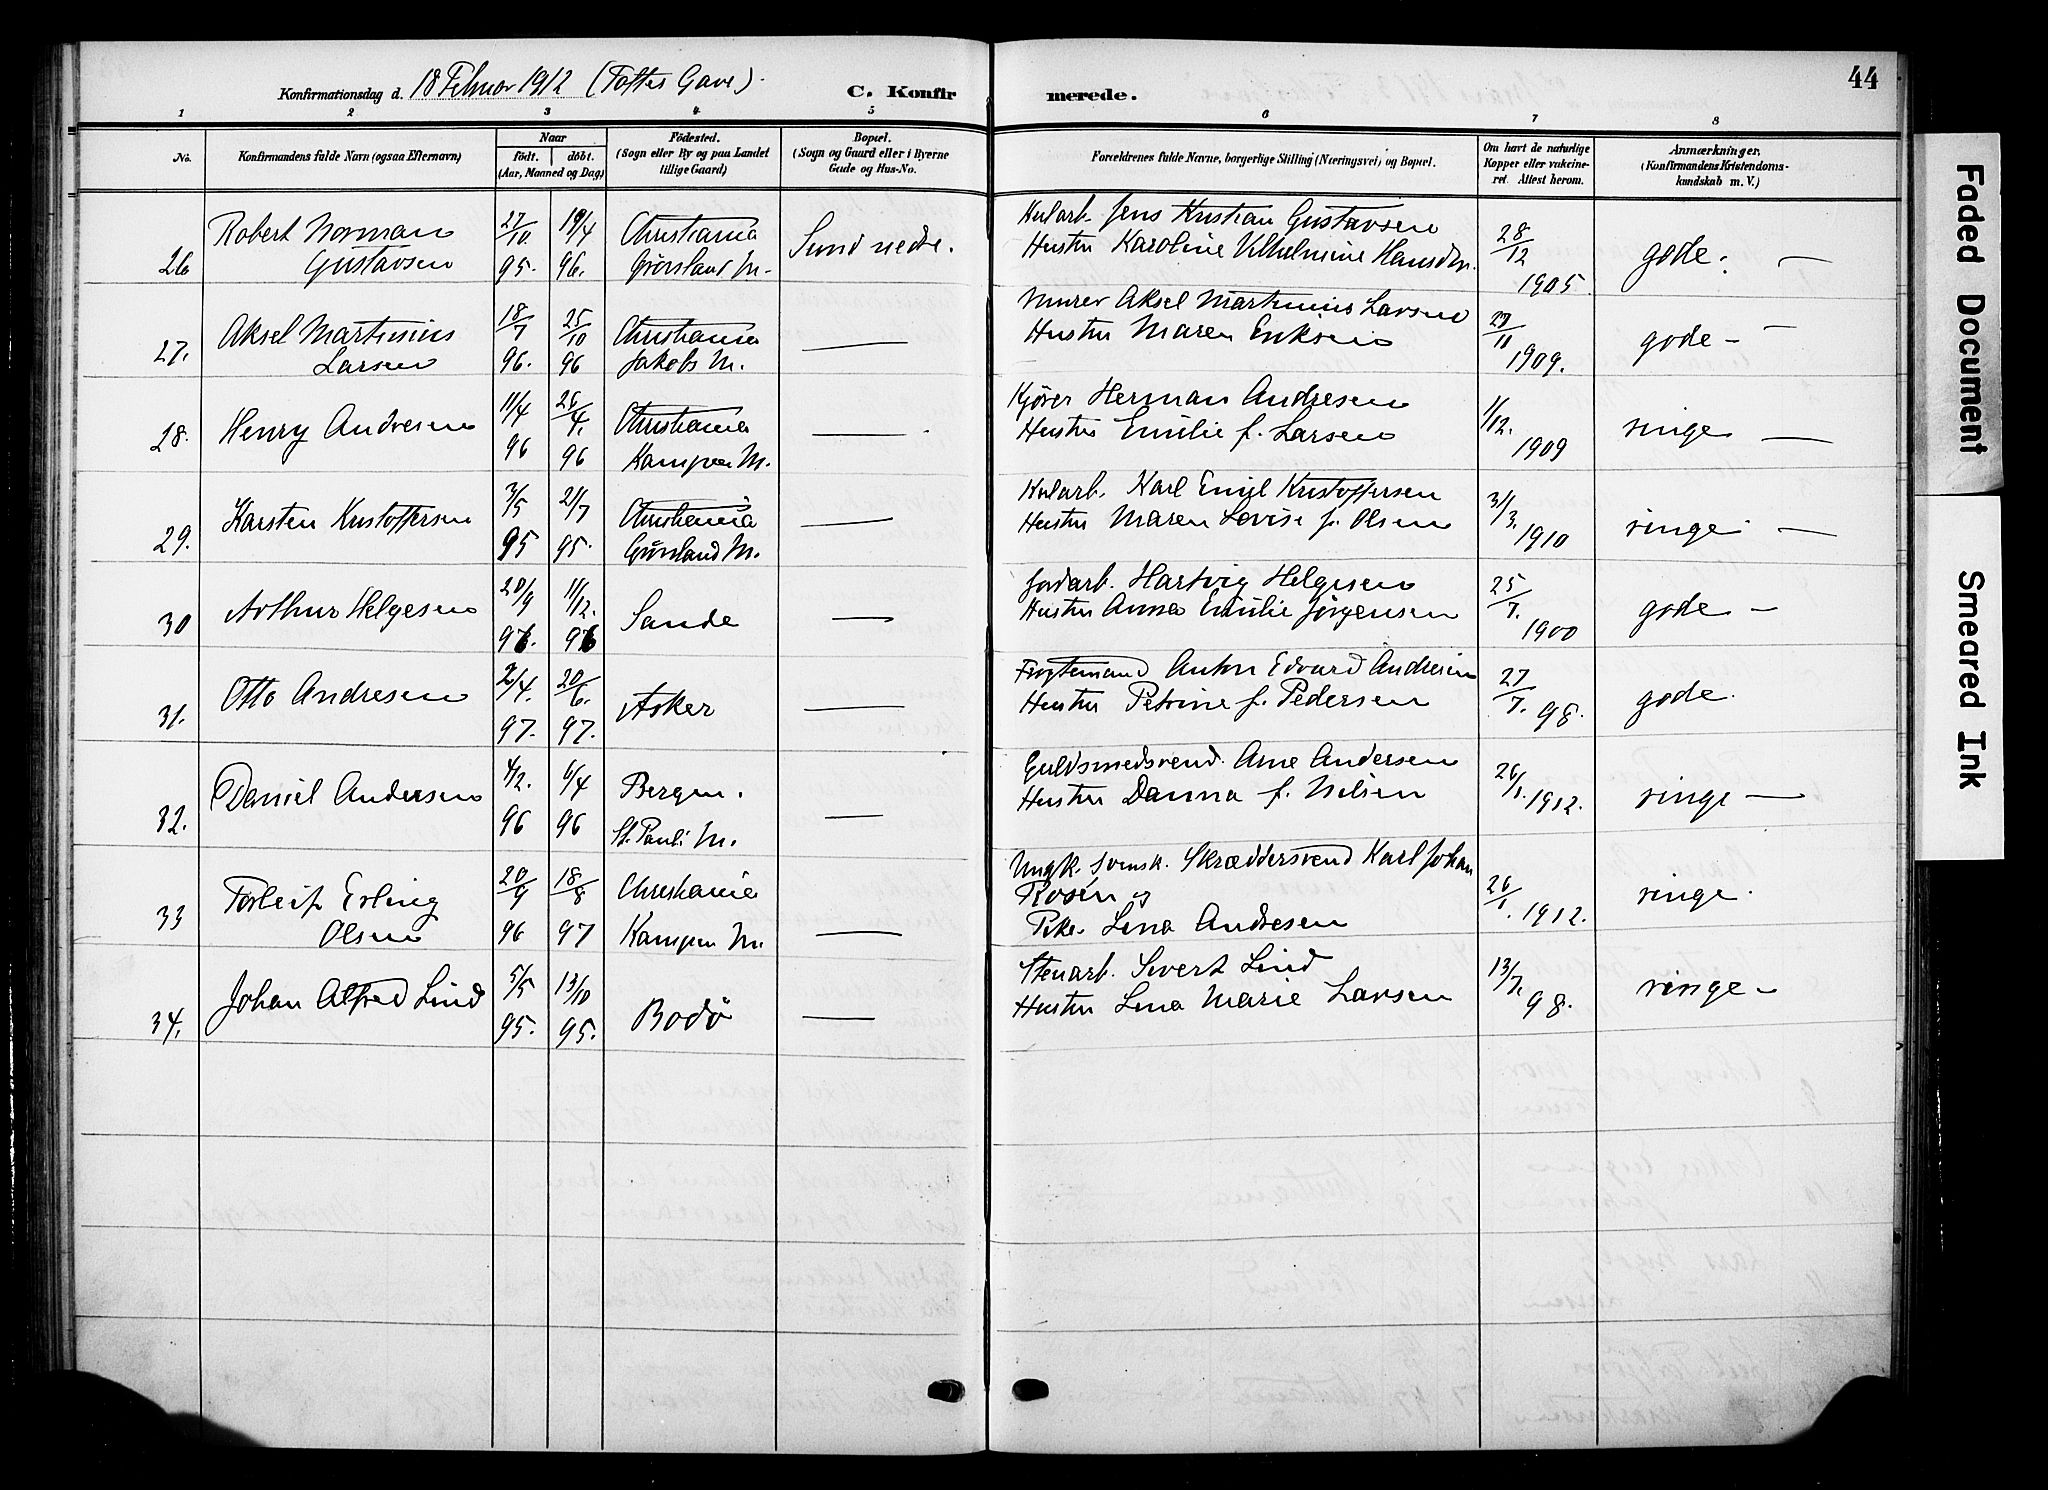 Konfirmationsdag d. 18 Februar 1912 (Toftes Gave).
C. Konfir merede.
44
1 2 3 4 5 6 7 8
No.
Konfirmandens fulde Navn (ogsaa Efternavn)
Naar
födt. döbt.
(Aar, Maaned og Dag)
Födested.
(Sogn eller By og paa Landet
tillige Gaard)
Bopæl.
(Sogn og Gaard eller i Byerne
Gade og Hus-No.
Forældrenes fulde Navne, borgerlige Stilling (Næringsvei) og Bopæl.
Om havt de naturlige
Kopper eller vakcine-
ret. Attest herom.
Anmærkninger.
(Konfirmandens Kristendoms-
kundskab m. V.)
26 Robert Norman
Gustavsen
27/10 95. 19/4 96.
Christiania
Grønland M.
Sund nedre.
Kularb. Jens Kristian Gustavsen
Hustru Karoline Vilhelmine Hansdtr.
28/12 1905.
gode. —
27. Aksel Martinius
Larsen
18/7 96. 25/10 96
Christiania
Jakobs M.
—
Murer Aksel Martinius Larsen
Hustru Maren Eriksen
27/11 1909.
gode —
28. Henry Andresen
11/4 96 26/4. 96
Christiania
Kampen M.
—
Kjörer Herman Andresen
Hustru Emilie f. Larsen
1/12. 1909
ringe —
29. Karsten Kristoffersen
3/5 95 21/7 95.
Christiania
Grønland M.
—
Kularb. Karl Emil Kristoffersen
Hustru Maren Lovise f. Olsen
31/3. 1910
ringe —
30 Arthur Helgesen
20/9 96. 11/12. 96
Sande
—
Jordarb. Hartvig Helgesen
Hustru Anna Emilie Jörgensen
25/7. 1900
gode —
31. Otto Andresen
2/4. 97. 20/6. 97.
Asker
—
Anton Edvard Andresen
Hustru Petrine f. Pedersen
27/7. 98.
gode.
32. Daniel Andersen
4/2. 96 6/4 96
Bergen.
St. Pauli M.
—
Guldsmedsvend. Arne Andersen
Hustru Danna f. Nilsen
26/1. 1912.
ringe —
33 Torleif Erling
Olsen
20/9 96 18/8 97
Christiania
Kampen M.
—
Ungk. svensk. Skræddersvend Karl Johan
Rosén og
Pike. Lina Andresen
26/1. 1912.
ringe.
34. Johan Alfred Lind
5/5 95. 13/10 95.
Bodö
—
Stenarb. Sivert Lind
Hustru Lina Marie Larsen
13/7. 98.
ringe —
Faded Document
Smeared Ink